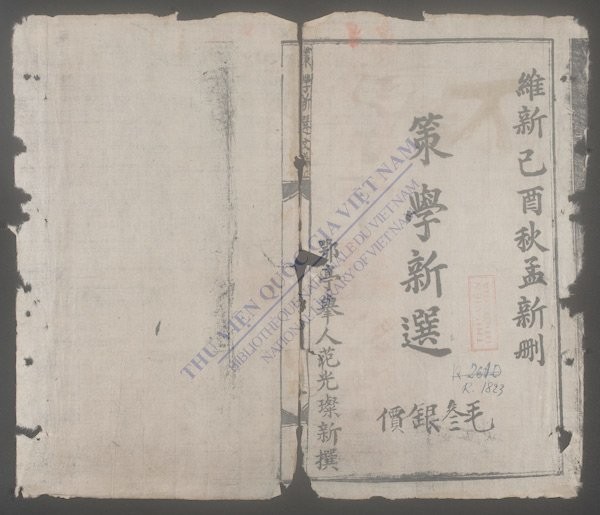 維新己酉秋孟新刪
策學新選
鄂亭舉人范光璨新撰
價銀叁毛
THƯ VIỆN QUỐC GIA VIỆT NAM
BIBLIOTHÈQUE NATIONALE DU VIETNAM
NATIONAL LIBRARY OF VIETNAM
2610
R. 1823